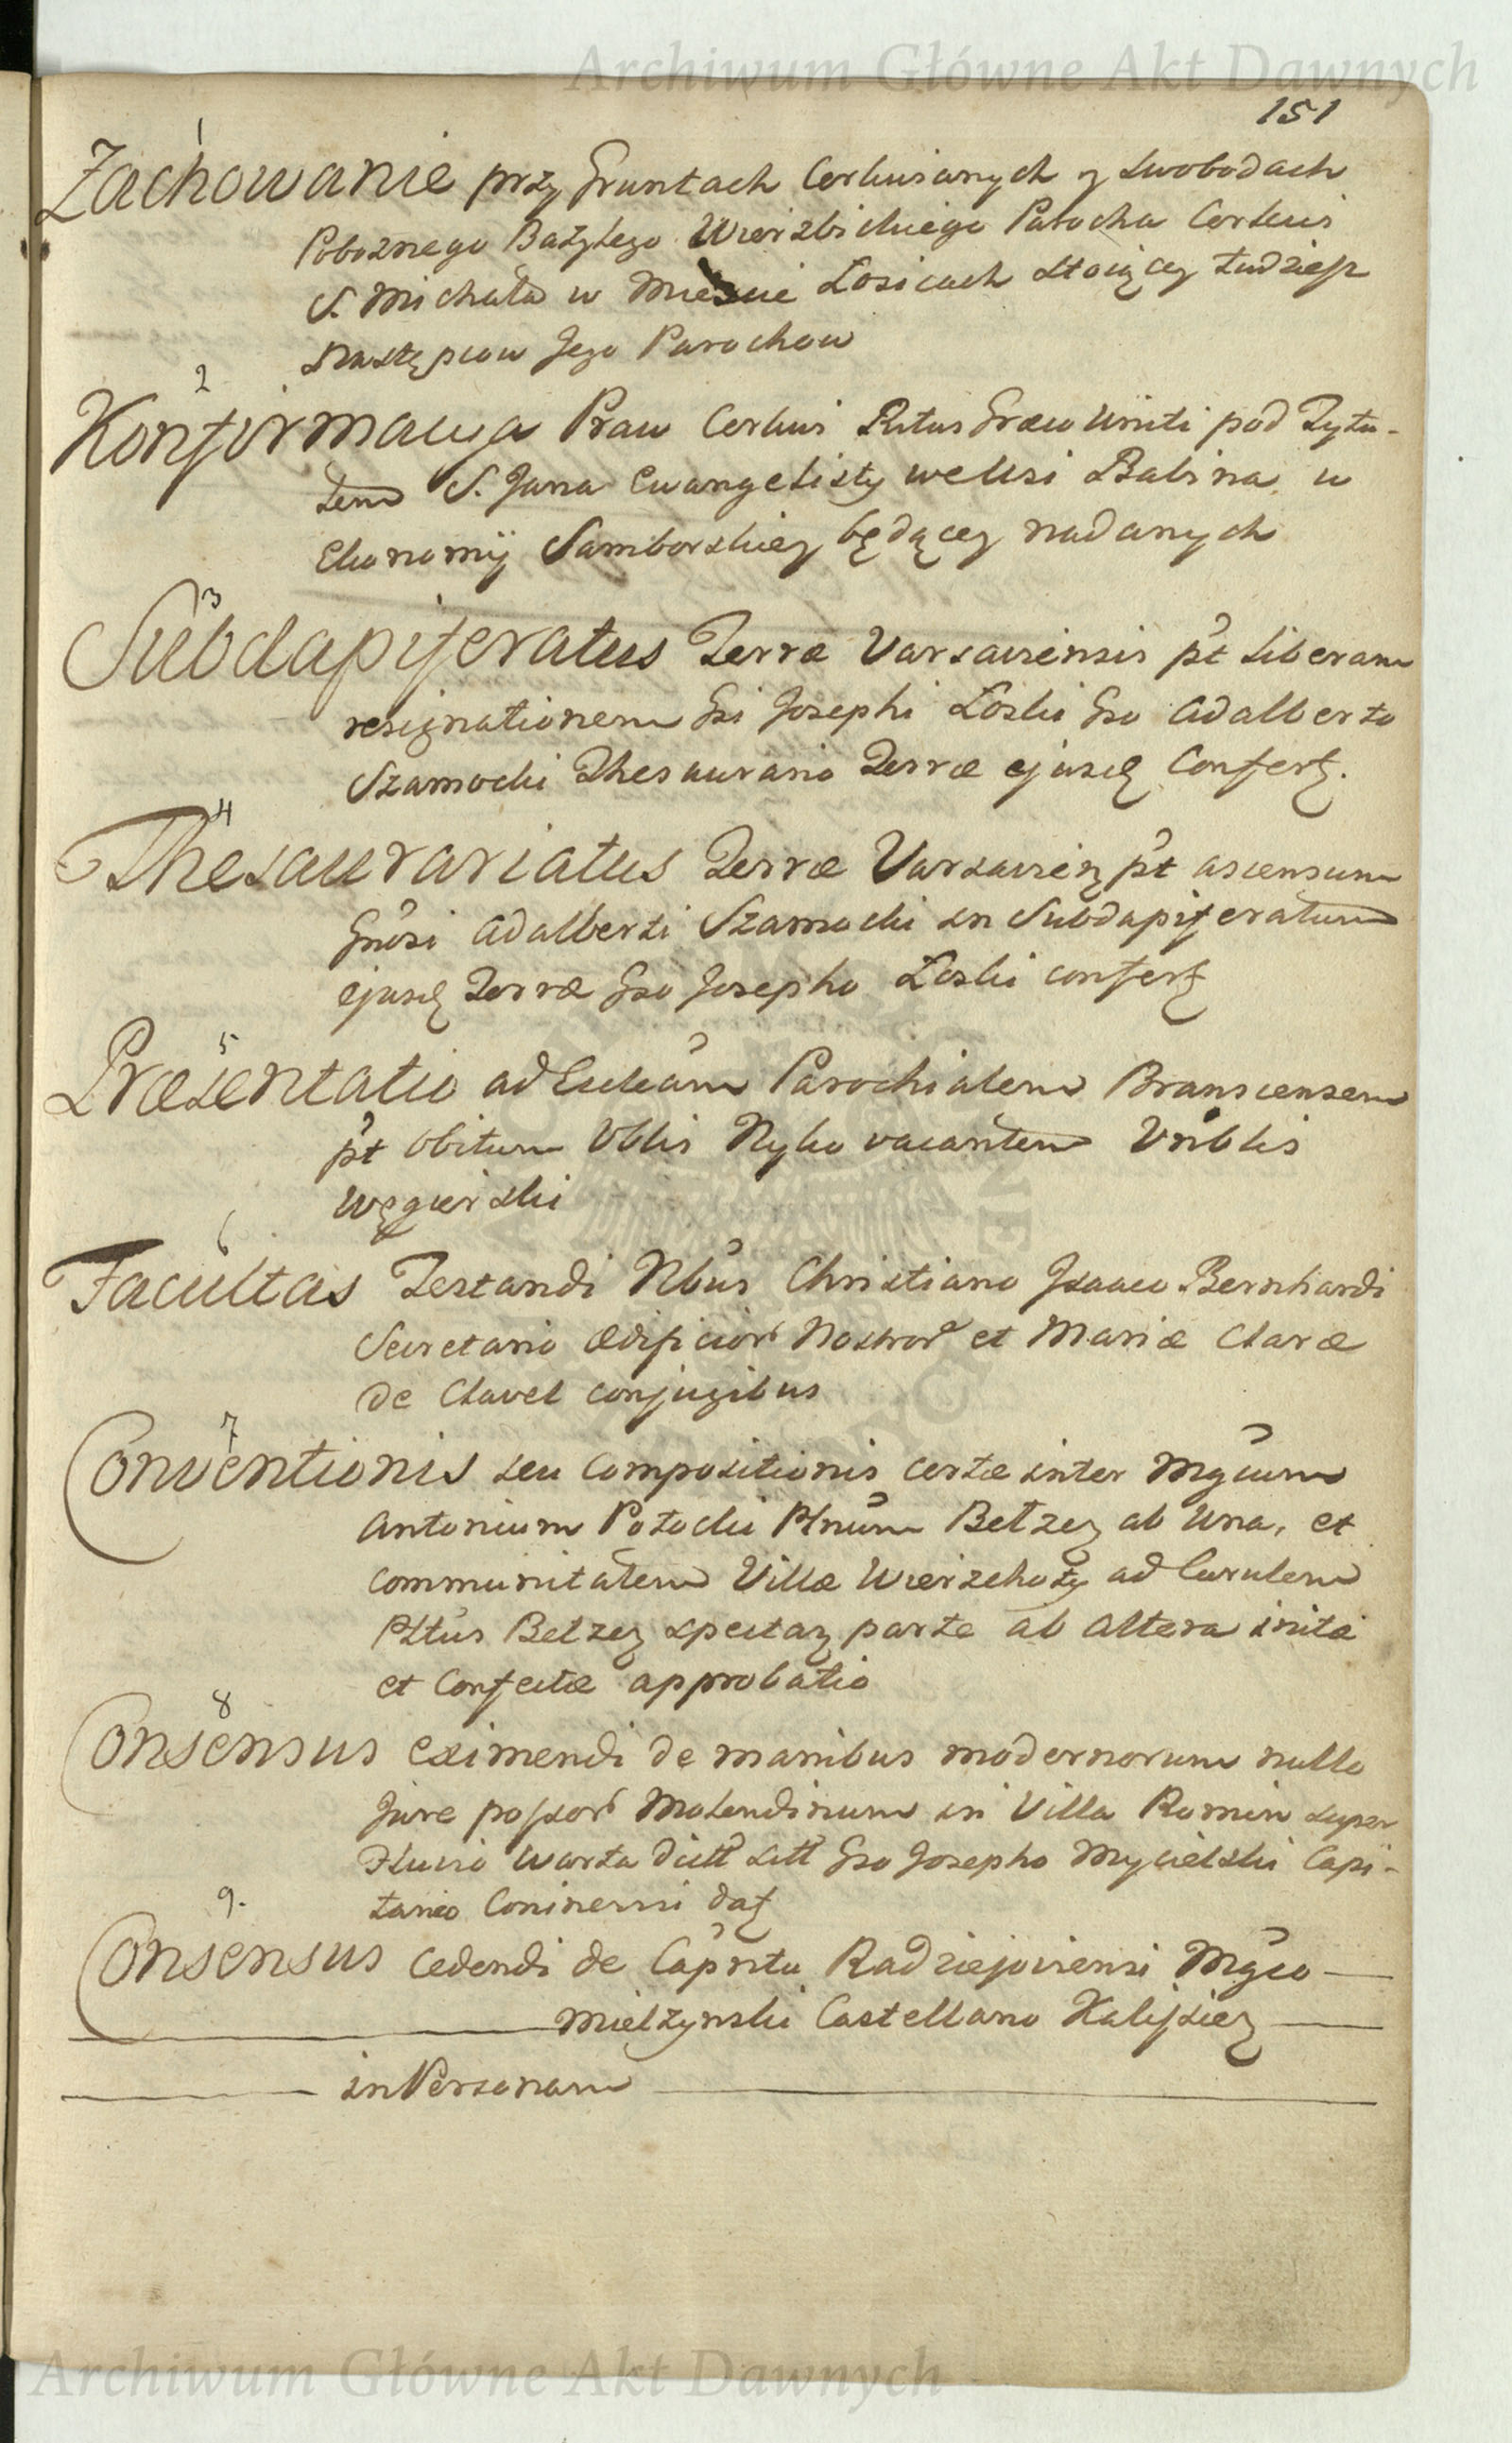 Archiwum Główne Akt Dawnych
151
1
Zachowanie przy Gruntach Cerkwianych y Swobodach
Poboznego Bazylego Wierzbickiego Parocha Cerkwi
S. Michała w Miescie Łosicach Stoiącey tudziesz
Następcow Jego Parochow
2
Konfirmacya Praw Cerkwi Ritus Græco Uniti pod Tytu-
łem S. Jana Ewangelisty we Wsi Babina w
Ekonomij Samborskiey będącey nadanych
3
Subdapiferatus Terræ Varsaviensis pt liberam
resignationem Gsi Josephi Łoski Gso Adalberto
Szamocki Thesaurario Terræ ejusd Confert.
4
Thesaurariatus Terræ Varsavien pt ascensum
Gnosi Adalberti Szamocki in Subdapiferatum
ejusd Terræ Gso Josepho Łoski confert
5
Præsentatio ad Eccleam Parochialem Branscensem
pt obitum Vblis Nyko vacantem Vnblis
Węgierski
6
Facultas Testandi Nbus Christiano Isaaco Bernhardi
Secretario Ædificior Nostror et Mariæ Claræ
de Clavel conjugibus
7
Conventionis seu Compositionis certæ inter Mgcum
Antonium Potocki Plnum Bełzen ab Una, et
communitatem Villæ Wierzchoty ad Curulem
Pltus Bełzen spectan parte ab altera initæ
et Confectæ approbatio
8
Consensus eximendi de manibus modernorum nullo
Jure possor Molendinum in Villa Rumin super
Fluvio Warta dict sitt Gso Josepho Mycielski Capi-
taneo Coninensi dat
9.
Consensus cedendi de Capntu Radziejoviensi Mgco
Mielzynski Castellano Kalissien
in Personam
Archiwum Główne Akt Dawnych